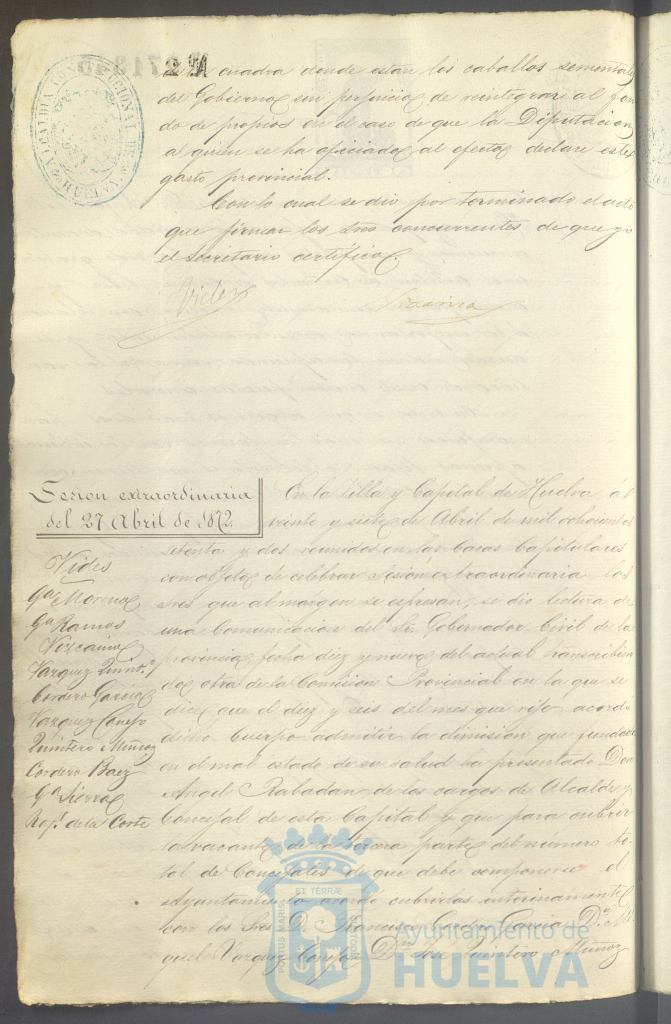 cuadra donde estan los caballos sementales
del Gobierno sin perjuicio de reintegrar al fon
do de propios en el caso de que la Diputacion
al quien se ha oficiado al efecto declare este
gasto provincial.
Con lo cual se dio por terminado el acto
que firman los Sres concurrentes de que yo
el Secretario certifico.
Vides
Vizcaino
Sesion extraordinaria
del 27 Abril de 1872.
Vides
Ga. Moreno
Ga. Ramos
Vizcaino
Vazquez Quint.o
Cordero Garcia
Vazquez Conejo
Quintero Muñoz
Cordero Baez
Ga. Sierra
de la Corte
En la Villa y Capital de Huelva á
veinte y siete de Abril de mil ochocientos
setenta y dos reunidos en las Casas Capitulares
con objeto de celebrar sesion extraordinaria los
Sres que al margen se espresan, se dio lectura de
una Comunicacion del Sr. Gobernador Civil de la
provincia fecha diez y nueve del actual transcribien
do otra de la Comision Provincial en la que se
dice que el diez y seis del mes que rije acordó
dicho Cuerpo admitir la dimision que fundado
en el mal estado de su salud ha presentado Don
Rabadan de los cargos de Alcalde y
Concejal de esta Capital y que para cubrir
la vacante de la tercera parte del número to
tal de Concejales de que debe componerse el
Ayuntamiento acordó cubrirlas interinamente
con los Sres D. Francisco Cordero Garcia Dn. Mi
guel Vazquez Conejo Dn. José Quintero Muñoz
ALCALDIA CONSTITUCIONAL DE HUELVA
PORTUS MARIS ET TERRÆ CUSTODIA
Ayuntamiento de
HUELVA